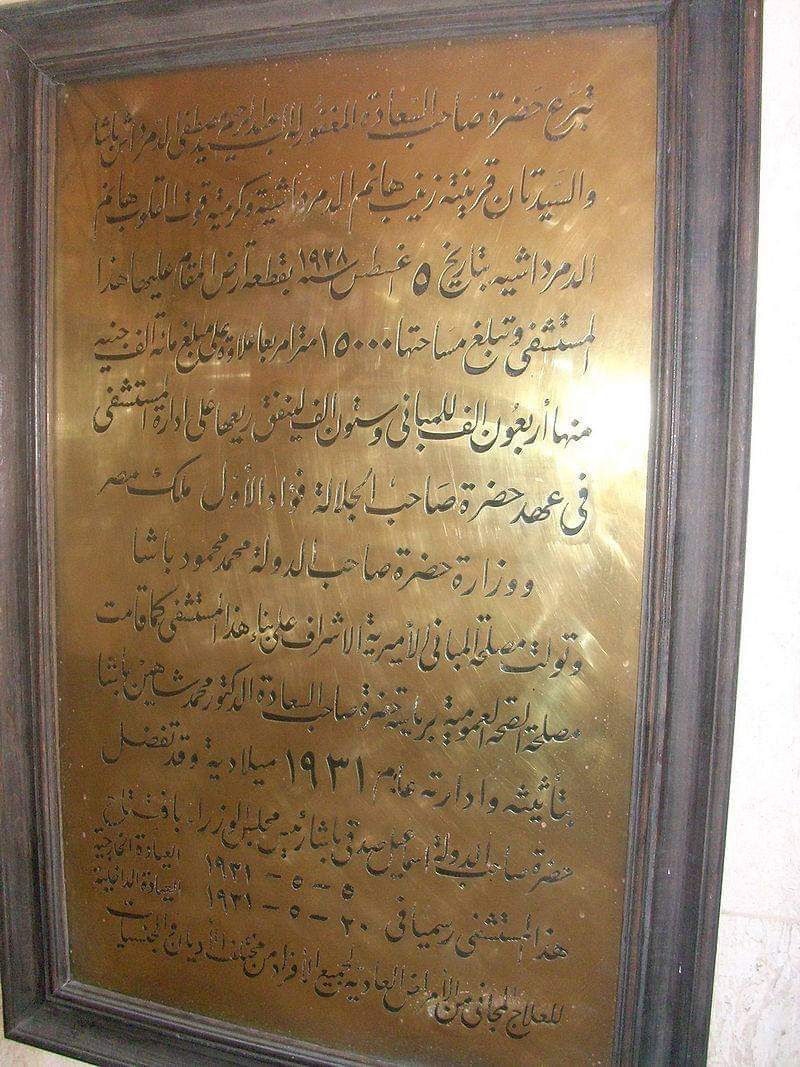 تبرع حضرة صاحب السعادة المغفور له عبد الرحيم مصطفى الدمرداش باشا
والسيدتان قرينته زينب هانم الدمرداشية وكريمته قوت القلوب هانم
الدمرداشيه بتاريخ ٥ اغسطس سنه ١٩٢٨ بقطعة أرض المقام عليها هذا
المستشفى وتبلغ مساحتها ١٥٠٠٠ مترا مربعا علاوة على مبلغ مائة الف جنيه
منها أربعون الف للمبانى وستون الف لينفق ريعها على ادارة المستشفى
فى عهد حضرة صاحب الجلالة فؤاد الأول ملك مصر
ووزارة حضرة صاحب الدولة محمد محمود باشا
وتولت مصلحة المبانى الأميرية الاشراف على بناء هذا المستشفى كما قامت
مصلحة الصحه العمومية برياسة حضرة صاحب السعادة الدكتور محمد شاهين باشا
بتأثيثه وادارته عام ١٩٣١ ميلادية وقد تفضل
حضرة صاحب الدولة اسماعيل صدقى باشا رئيس مجلس الوزراء بافتتاح
هذا المستشفى رسميا فى ٥ - ٥ - ١٩٣١ العيادة الخارجية
٢٠ - ٥ - ١٩٣١ العيادة الداخلية
للعلاج المجانى من الأمراض العادية لجميع الأفراد من مختلف الأديان والجنسيات